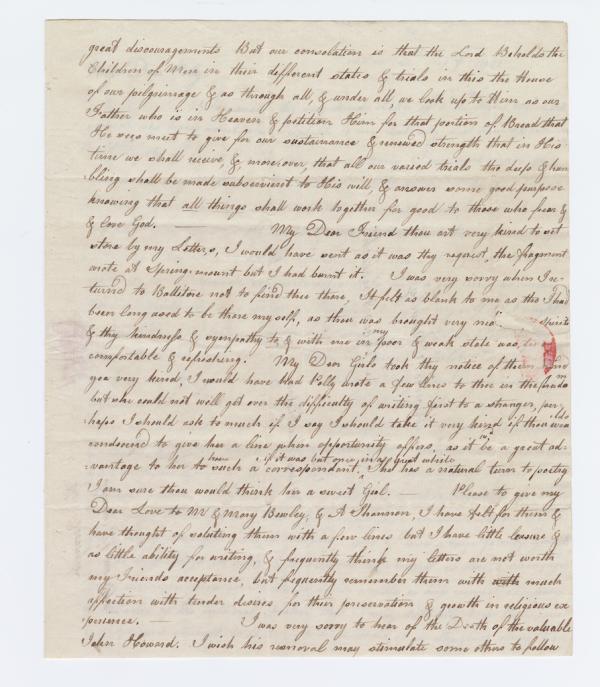 great discouragements But our consolation is that the Lord Beholds the
Children of Men in their different states & trials in this the House
of our pilgrimage & as through all, & under all, we look up to Him as our
Father who is in Heaven & petition Him for that portion of Bread that
He sees meet to give for our sustainance & renewed strength that in His
time we shall receive, & moreover, that all our varied trials tho deep & hum
bling shall be made subservient to His will, & answer some good purpose
knowing that all things shall work together for good to those who fear &
& love God. ——— My Dear Friend thou art very kind to set
store by my Letters, I would have sent as it was thy request, the fragment
wrote at Spring-mount but I had burnt it. I was very sorry when I re-
turned to Ballitore not to find thee there, It felt as blank to me as tho I had
been long used to be there myself, as thou was brought very nio spirit
& thy kindness & sympathy to & with me in my poor & weak state was
comfortable & refreshing. My Dear Girls took thy notice of them
yea very kind, I would have had Polly wrote a few lines to thee in the
but she could not well get over the difficulty of writing first to a stranger, per,
haps I should ask to much if I say I should take it very kind if thou would
condescend to give her a line when opportunity offers, as it w'd be a great ad-
vantage to her to have such a correspondent, if it was but once in a great while She has a natural turn to poetry
I am sure thou would think her a sweet Girl. —— Please to give my
Dear Love to M & Mary Bewley, & A Shannon, I have felt for them &
have thought of saluting them with a few lines but I have little leasure &
as little ability for writing, & frequently think my letters are not worth
my Friends acceptance, but frequently remember them with with much
affection with tender desires for their preservation & growth in religious ex
perience. — I was very sorry to hear of the Death of the valuable
John Howard. I wish his removal may stimulate some others to follow